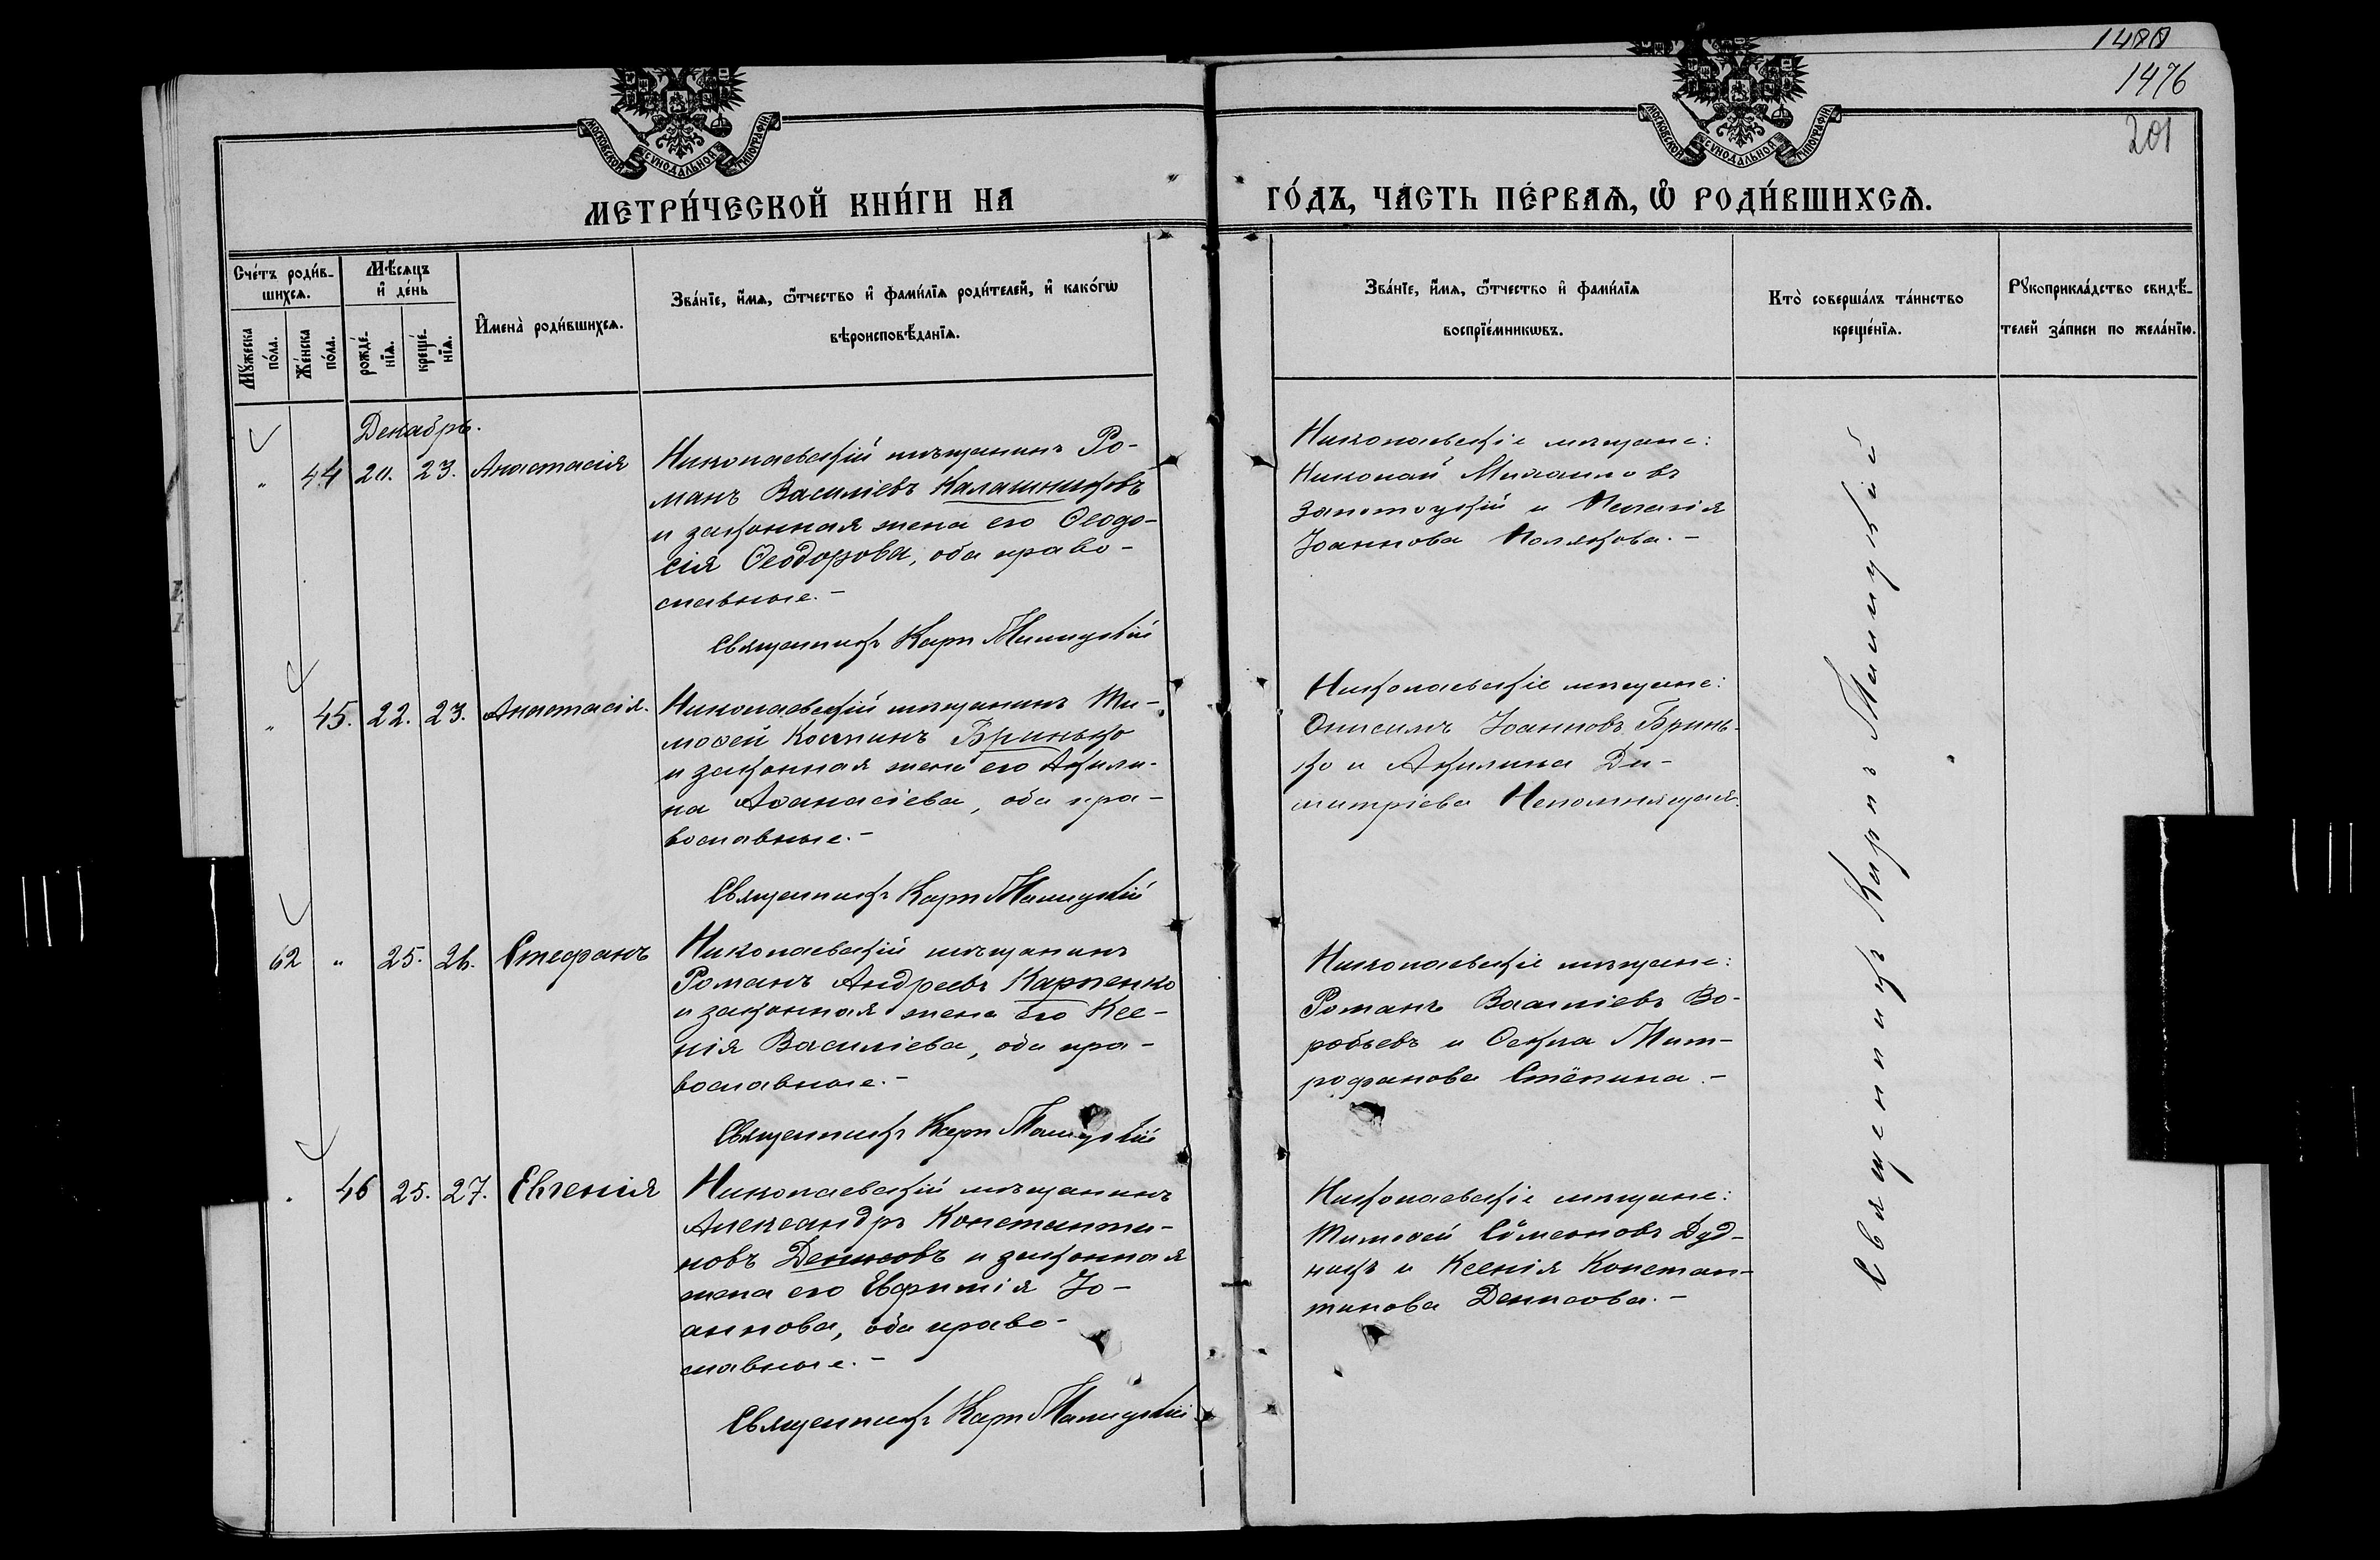 1476
201
МОСКОВСКОЙ СѴНОДАЛЬНОЙ ТИПОГРАФІИ
МОСКОВСКОЙ СѴНОДАЛЬНОЙ ТИПОГРАФІИ
МЕТРИ́ЧЕСКОЙ КНИ́ГИ НА
ГО́ДЪ, ЧА́СТЬ ПЕ́РВАѦ, Ѽ РОДИ́ВШИХСѦ.
Сче́тъ роди́в-
шихсѧ.
Мꙋ́жеска
по́ла.
Же́нска
по́ла.
Мѣ́сѧцъ
и҆ де́нь
рожде́-
нїѧ.
креще́-
нїѧ.
И҆мена̀ роди́вшихсѧ.
Зва́нїе, и҆́мѧ, ѻ҆́тчество и҆ фами́лїѧ роди́телей, и҆ како́гѡ
вѣроисповѣ́данїѧ.
Зва́нїе, и҆́мѧ, ѻ҆́тчество и҆ фами́лїѧ
воспрїе́мникѡвъ.
Кто̀ соверша́лъ та́инство
креще́нїѧ.
Рꙋкоприкла́дство свидѣ́-
телей за́писи по жела́нїю.
Декабрь.
" 44 20. 23. Анастасія
Николаевскій мѣщанинъ Ро-
манъ Василіевъ Калашниковъ
и законная жена его Ѳеодо-
сія Ѳеодорова, оба право-
славные.-
Священникъ Карп Малицкій
Николаевскіе мѣщане:
Николай Михаиловъ
и Пелагія
Іоаннова Полякова.-
" 45. 22. 23. Анастасія.
Николаевскій мѣщанинъ Ти-
моѳей Косминъ Бринько
и законная жена его Акили-
на Аѳанасіева, оба пра-
вославные.-
Священникъ Карп Малицкій
Николаевскіе мѣщане:
Онисимъ Іоанновъ Бринь-
ко и Акилина Ди-
митріева Непомнящая.
62 " 25. 26. Стефанъ
Николаевскій мѣщанинъ
Романъ Андреевъ Карпенко
и законная жена его Ксе-
нія Василіева, оба пра-
вославные.-
Священникъ Карп Малицкій
Николаевскіе мѣщане:
Романъ Василіевъ Во-
робьевъ и Ѳекла Мит-
рофанова Стёпина.-
" 46 25. 27. Евгенія
Николаевскій мѣщанинъ
Александръ Константи-
новъ Денисовъ и законная
жена его Евфимія Іо-
аннова, оба право-
славные.-
Священникъ Карп Малицкій
Николаевскіе мѣщане:
Тимоѳей Сѵмеоновъ Дуд-
никъ и Ксенія Констан-
тинова Денисова.-
Священникъ Карпъ Малицкій